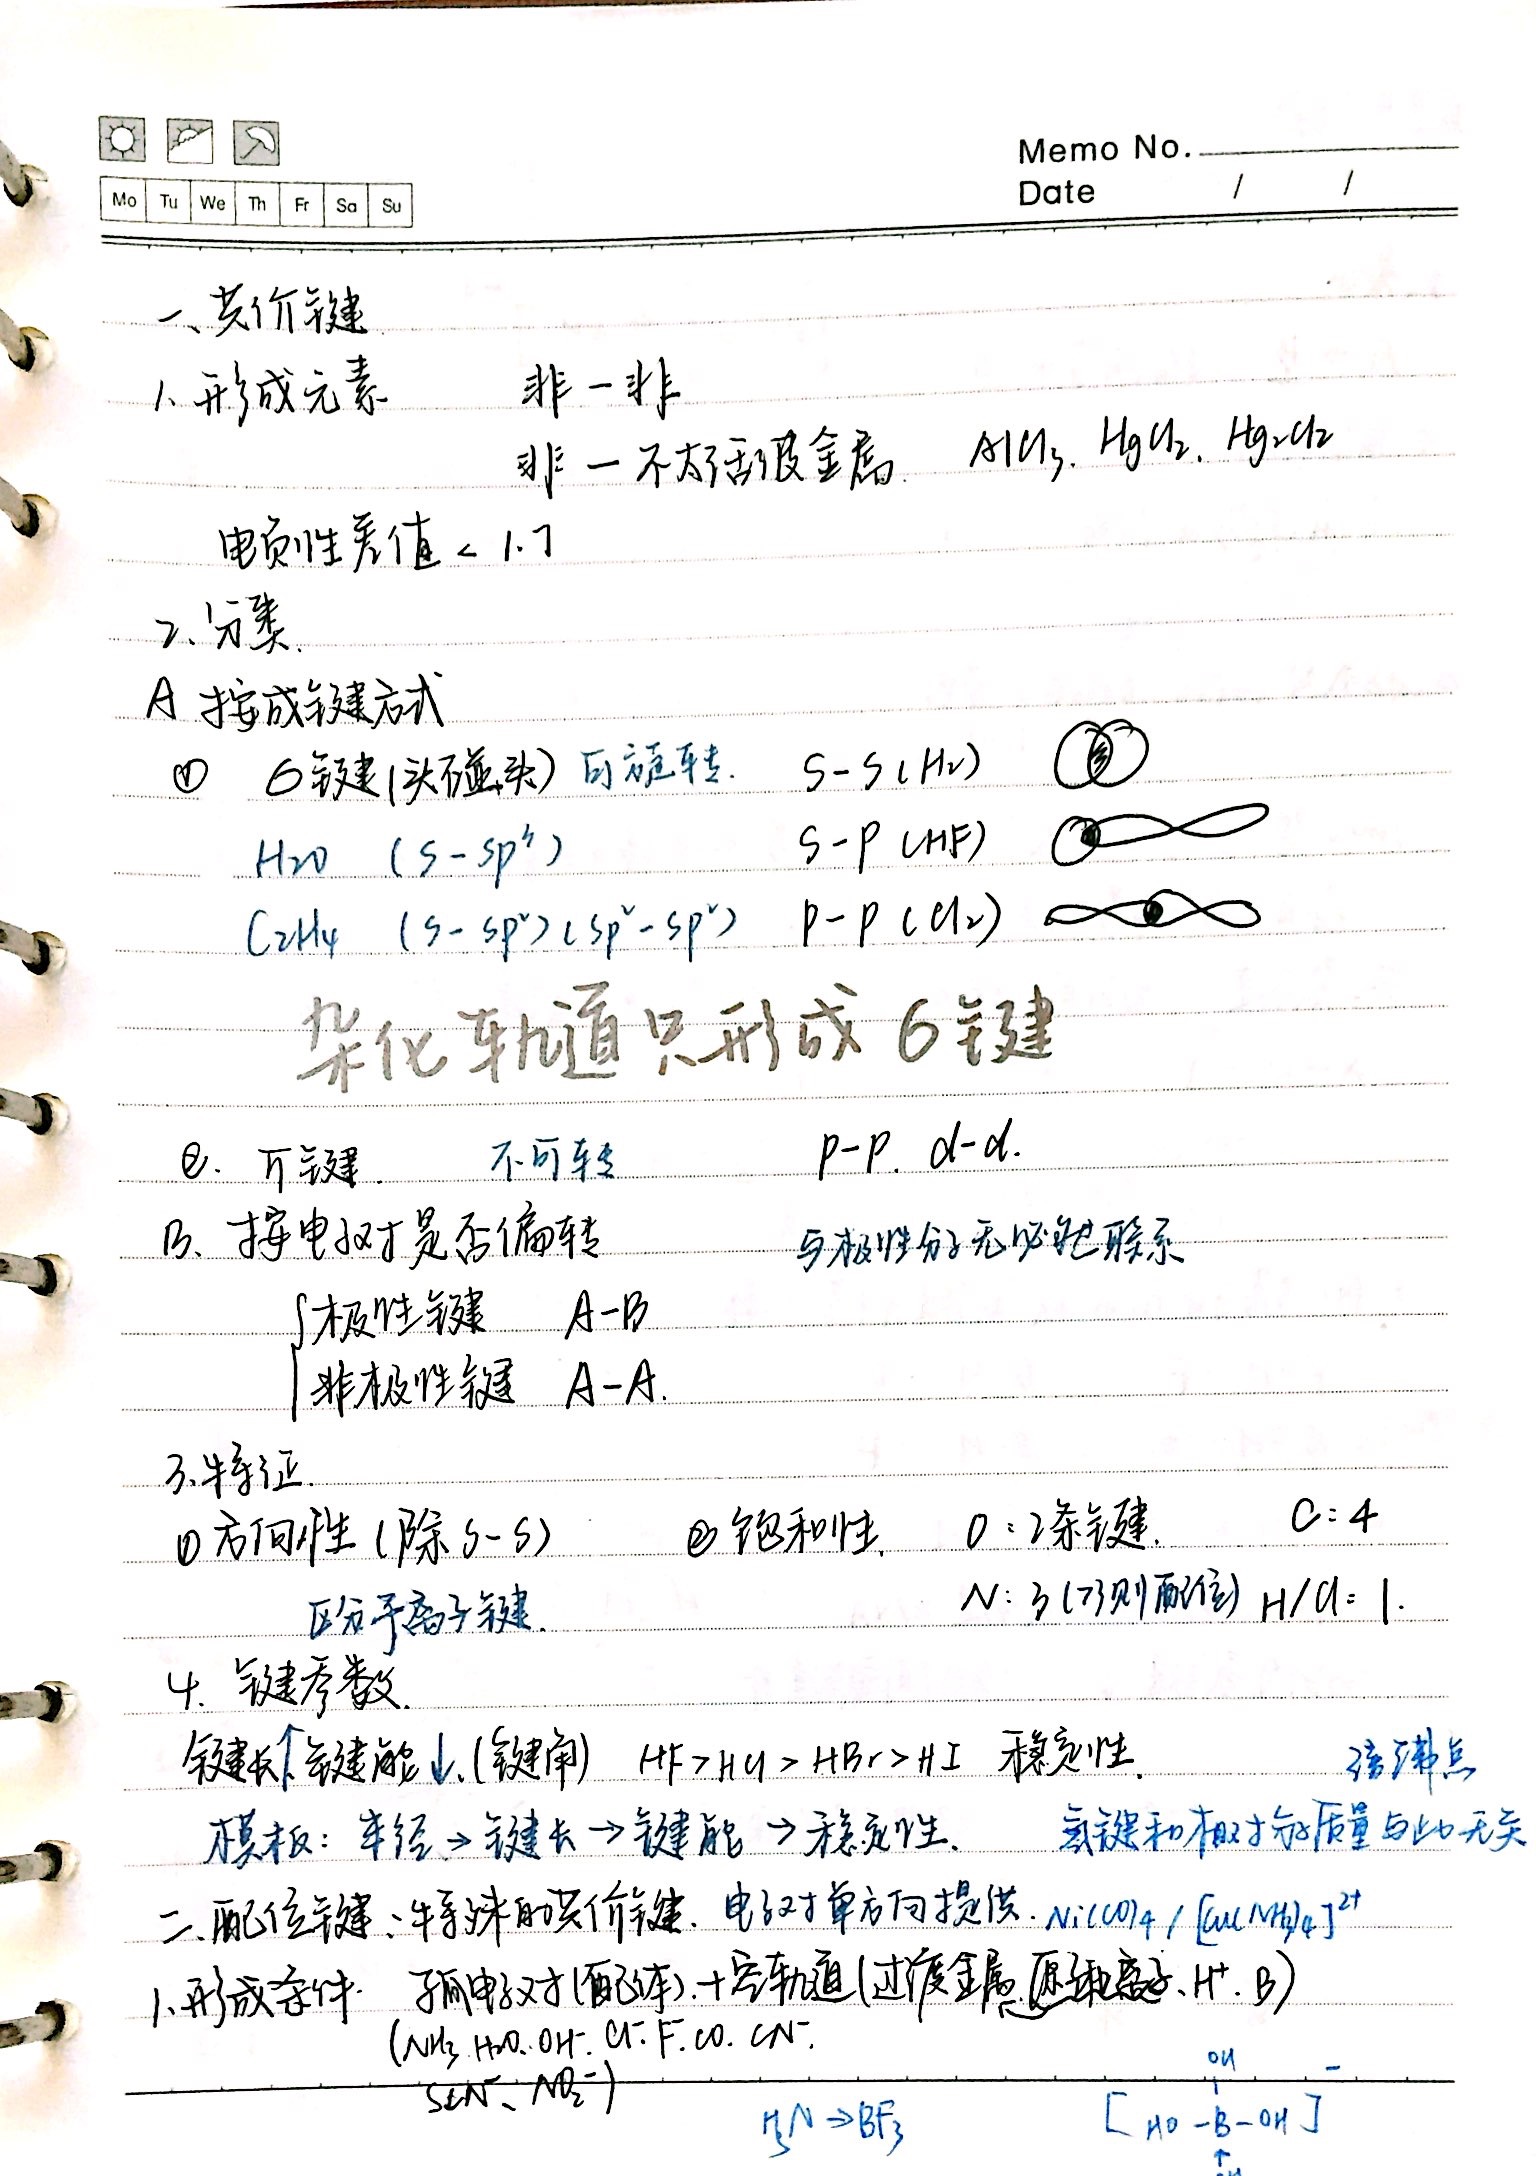 Memo No.
Mo Tu We Th Fr Sa Su
Date / /
一、共价键
1、形成元素 非－非
非－不太活泼金属. AlCl₃、HgCl₂、Hg₂Cl₂
电负性差值 < 1.7
2、分类.
A 按成键方式
① σ键(头碰头) 可旋转. S-S(H₂)
H₂O (S-Sp³) S-P (HF)
C₂H₄ (S-Sp²)(Sp²-Sp²) P-P (Cl₂)
杂化轨道只形成σ键
②. π键. 不可转 P-P. d-d.
B、按电子对是否偏转 与极性分子无必然联系
极性键 A-B
非极性键 A-A.
3.特征.
①方向性(除S-S) ②饱和性. O:2条键. C:4
区分于离子键. N:3(>3则配位) H/Cl:1.
4. 键参数.
键长↑键能↓.(键角) HF>HCl>HBr>HI 稳定性. 沸点
模板: 半径→键长→键能→稳定性. 氢键和相对分子质量与此无关
二、配位键、特殊的共价键. 电子对单方向提供. Ni(CO)₄ / [Cu(NH₃)₄]²⁺
1、形成条件. 孤电子对(配体).+空轨道(过渡金属原子和离子、H⁺. B)
(NH₃. H₂O. OH⁻. Cl⁻. F⁻. CO. CN⁻.
SCN⁻、NO₂⁻)
OH
H₃N→BF₃ [HO-B-OH]⁻
↑
OH